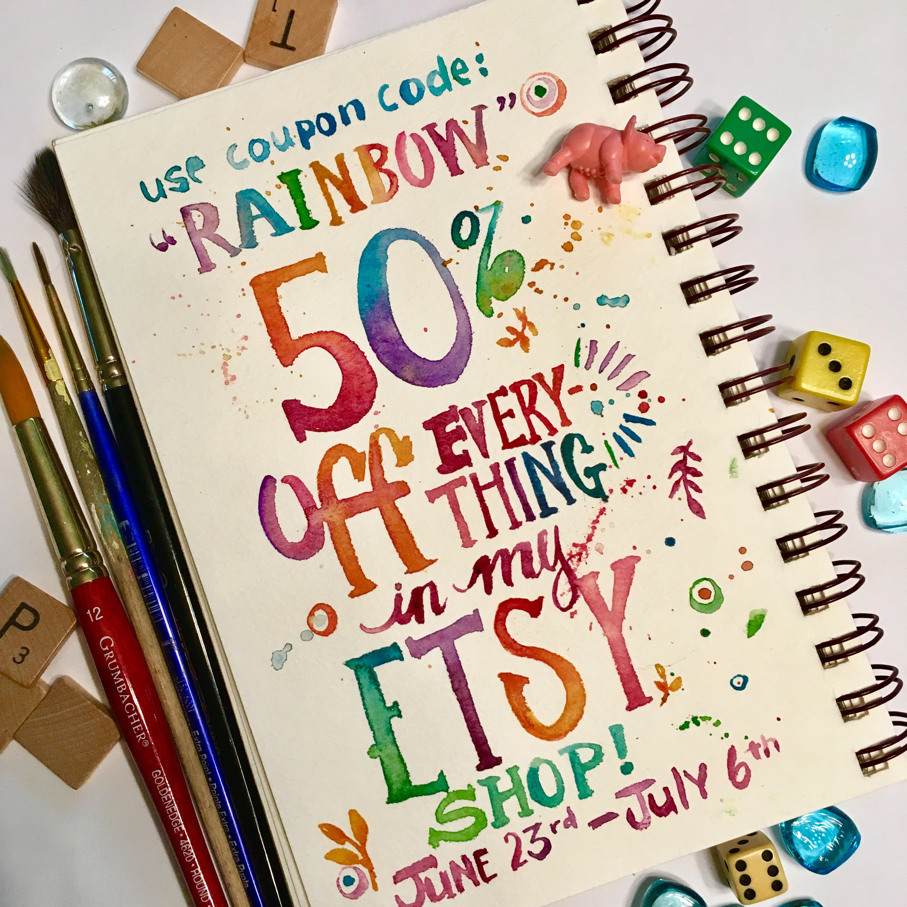 use coupon code:
"RAINBOW"
50%
off EVERY-
THING
in my
ETSY
SHOP!
JUNE 23rd - JULY 6th
T
P
3
12
GRUMBACHER®
GOLDENEDGE • 4620 • ROUND